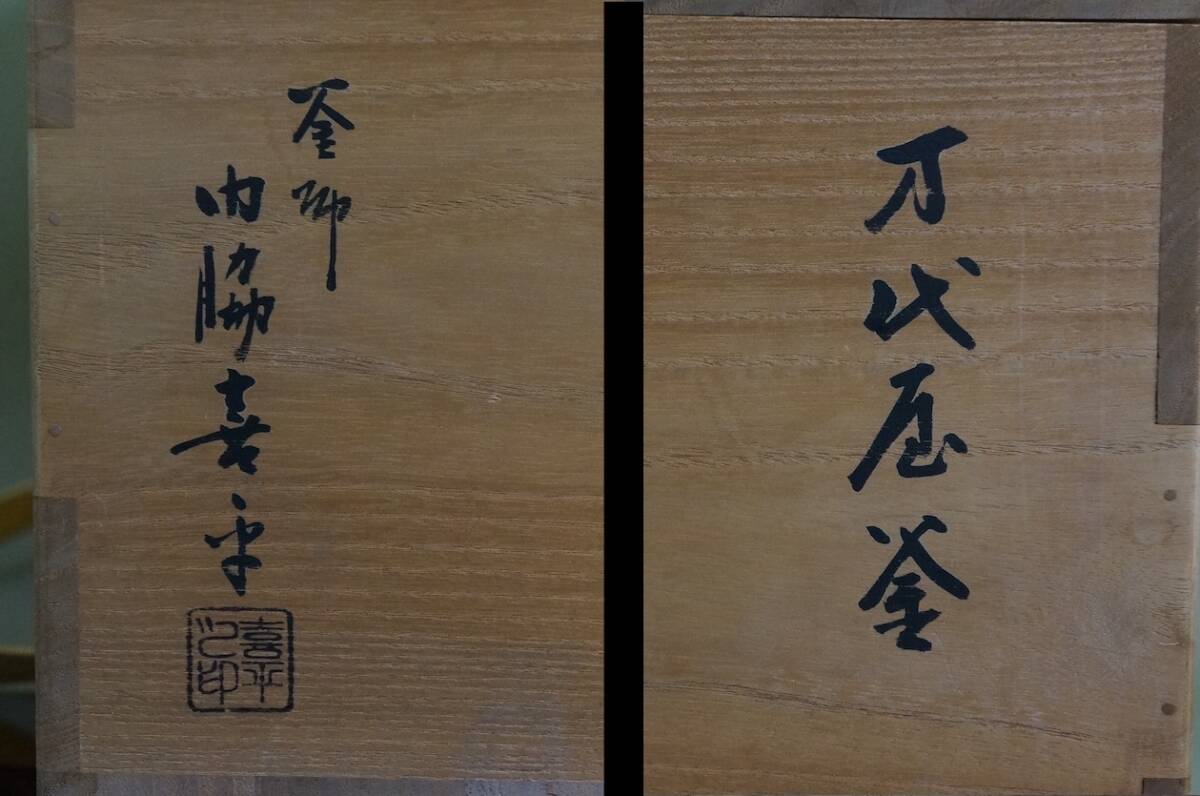 万代屋釜
釜師
内脇喜平
喜平
之印